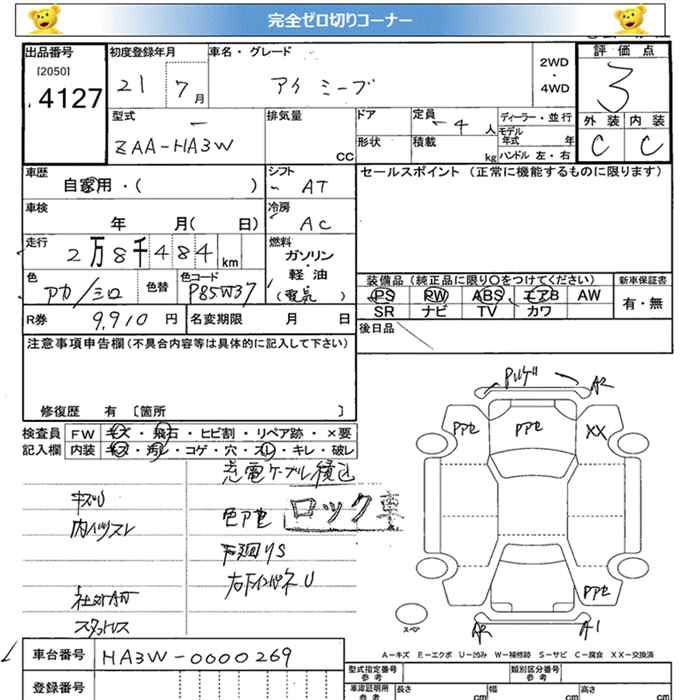 完全ゼロ切りコーナー
出品番号
[2050]
4127
初度登録年月
21 7月
車名・グレード
アイ ミーブ
2WD
・
4WD
評価点
3
型式
ZAA-HA3W
排気量
CC
ドア
形状
定員
4人
積載
kg
ディーラー・並行
モデル
年式 年
ハンドル 左・右
外装 内装
C C
車歴
自家用・( )
シフト
AT
セールスポイント (正常に機能するものに限ります)
車検
年 月( 日)
冷房
AC
走行
2万8千484km
燃料
ガソリン
・
軽油
(電気)
色
アカ/シロ
色替
色コード
P85W37
装備品(純正品に限り○をつけてください)
新車保証書
PS PW ABS エアB AW
SR ナビ TV カワ
有・無
R券 9,910円
名変期限 月 日
後日品
注意事項申告欄(不具合内容等は具体的に記入して下さい)
修復歴 有 〔箇所 〕
検査員
記入欄
FW キズ・飛石・ヒビ割・リペア跡・×要
内装 キズ・汚レ・コゲ・穴・スレ・キレ・破レ
充電ケーブル積込
キズU
内ハゲスレ
色アセ
ロック車
下廻りS
スタットレス
車台番号
HA3W-0000269
登録番号
Pハゲ
A2
Pアセ
Pアセ
XX
Pアセ
スペア
A2
A1
A-キズ E-エクボ U-凹み W-補修跡 S-サビ C-腐食 XX-交換済
型式指定番号
参考
類別区分番号
参考
車庫証明用
参考
長さ cm
幅 cm
高さ cm